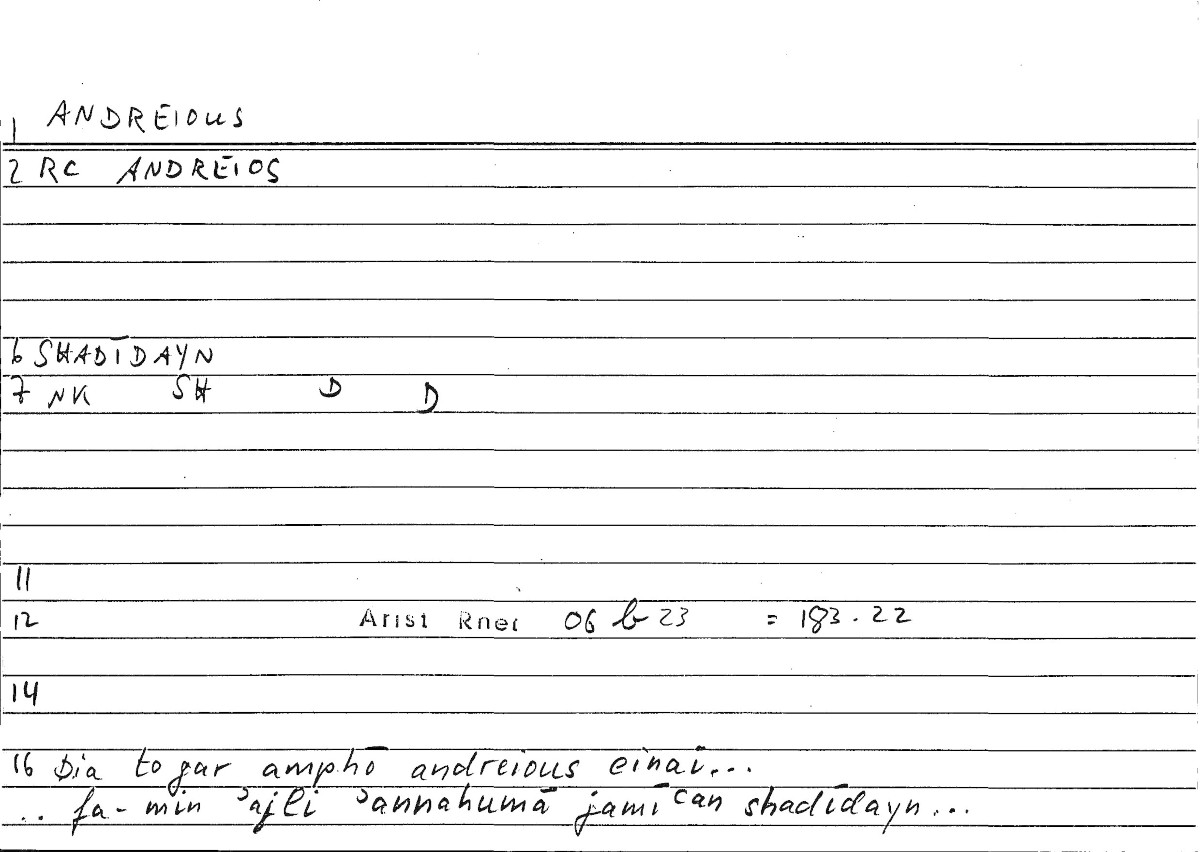 1 ANDREIOUS
2 RC ANDREIOS
6 SHADĪDAYN
7 NK SH D D
11
12 Arist Rhet 06 b 23 = 183.22
14
16 Dia to gar amphō andreious einai...
.. fa-min ʾajli ʾannahumā jamīʿan shadīdayn...